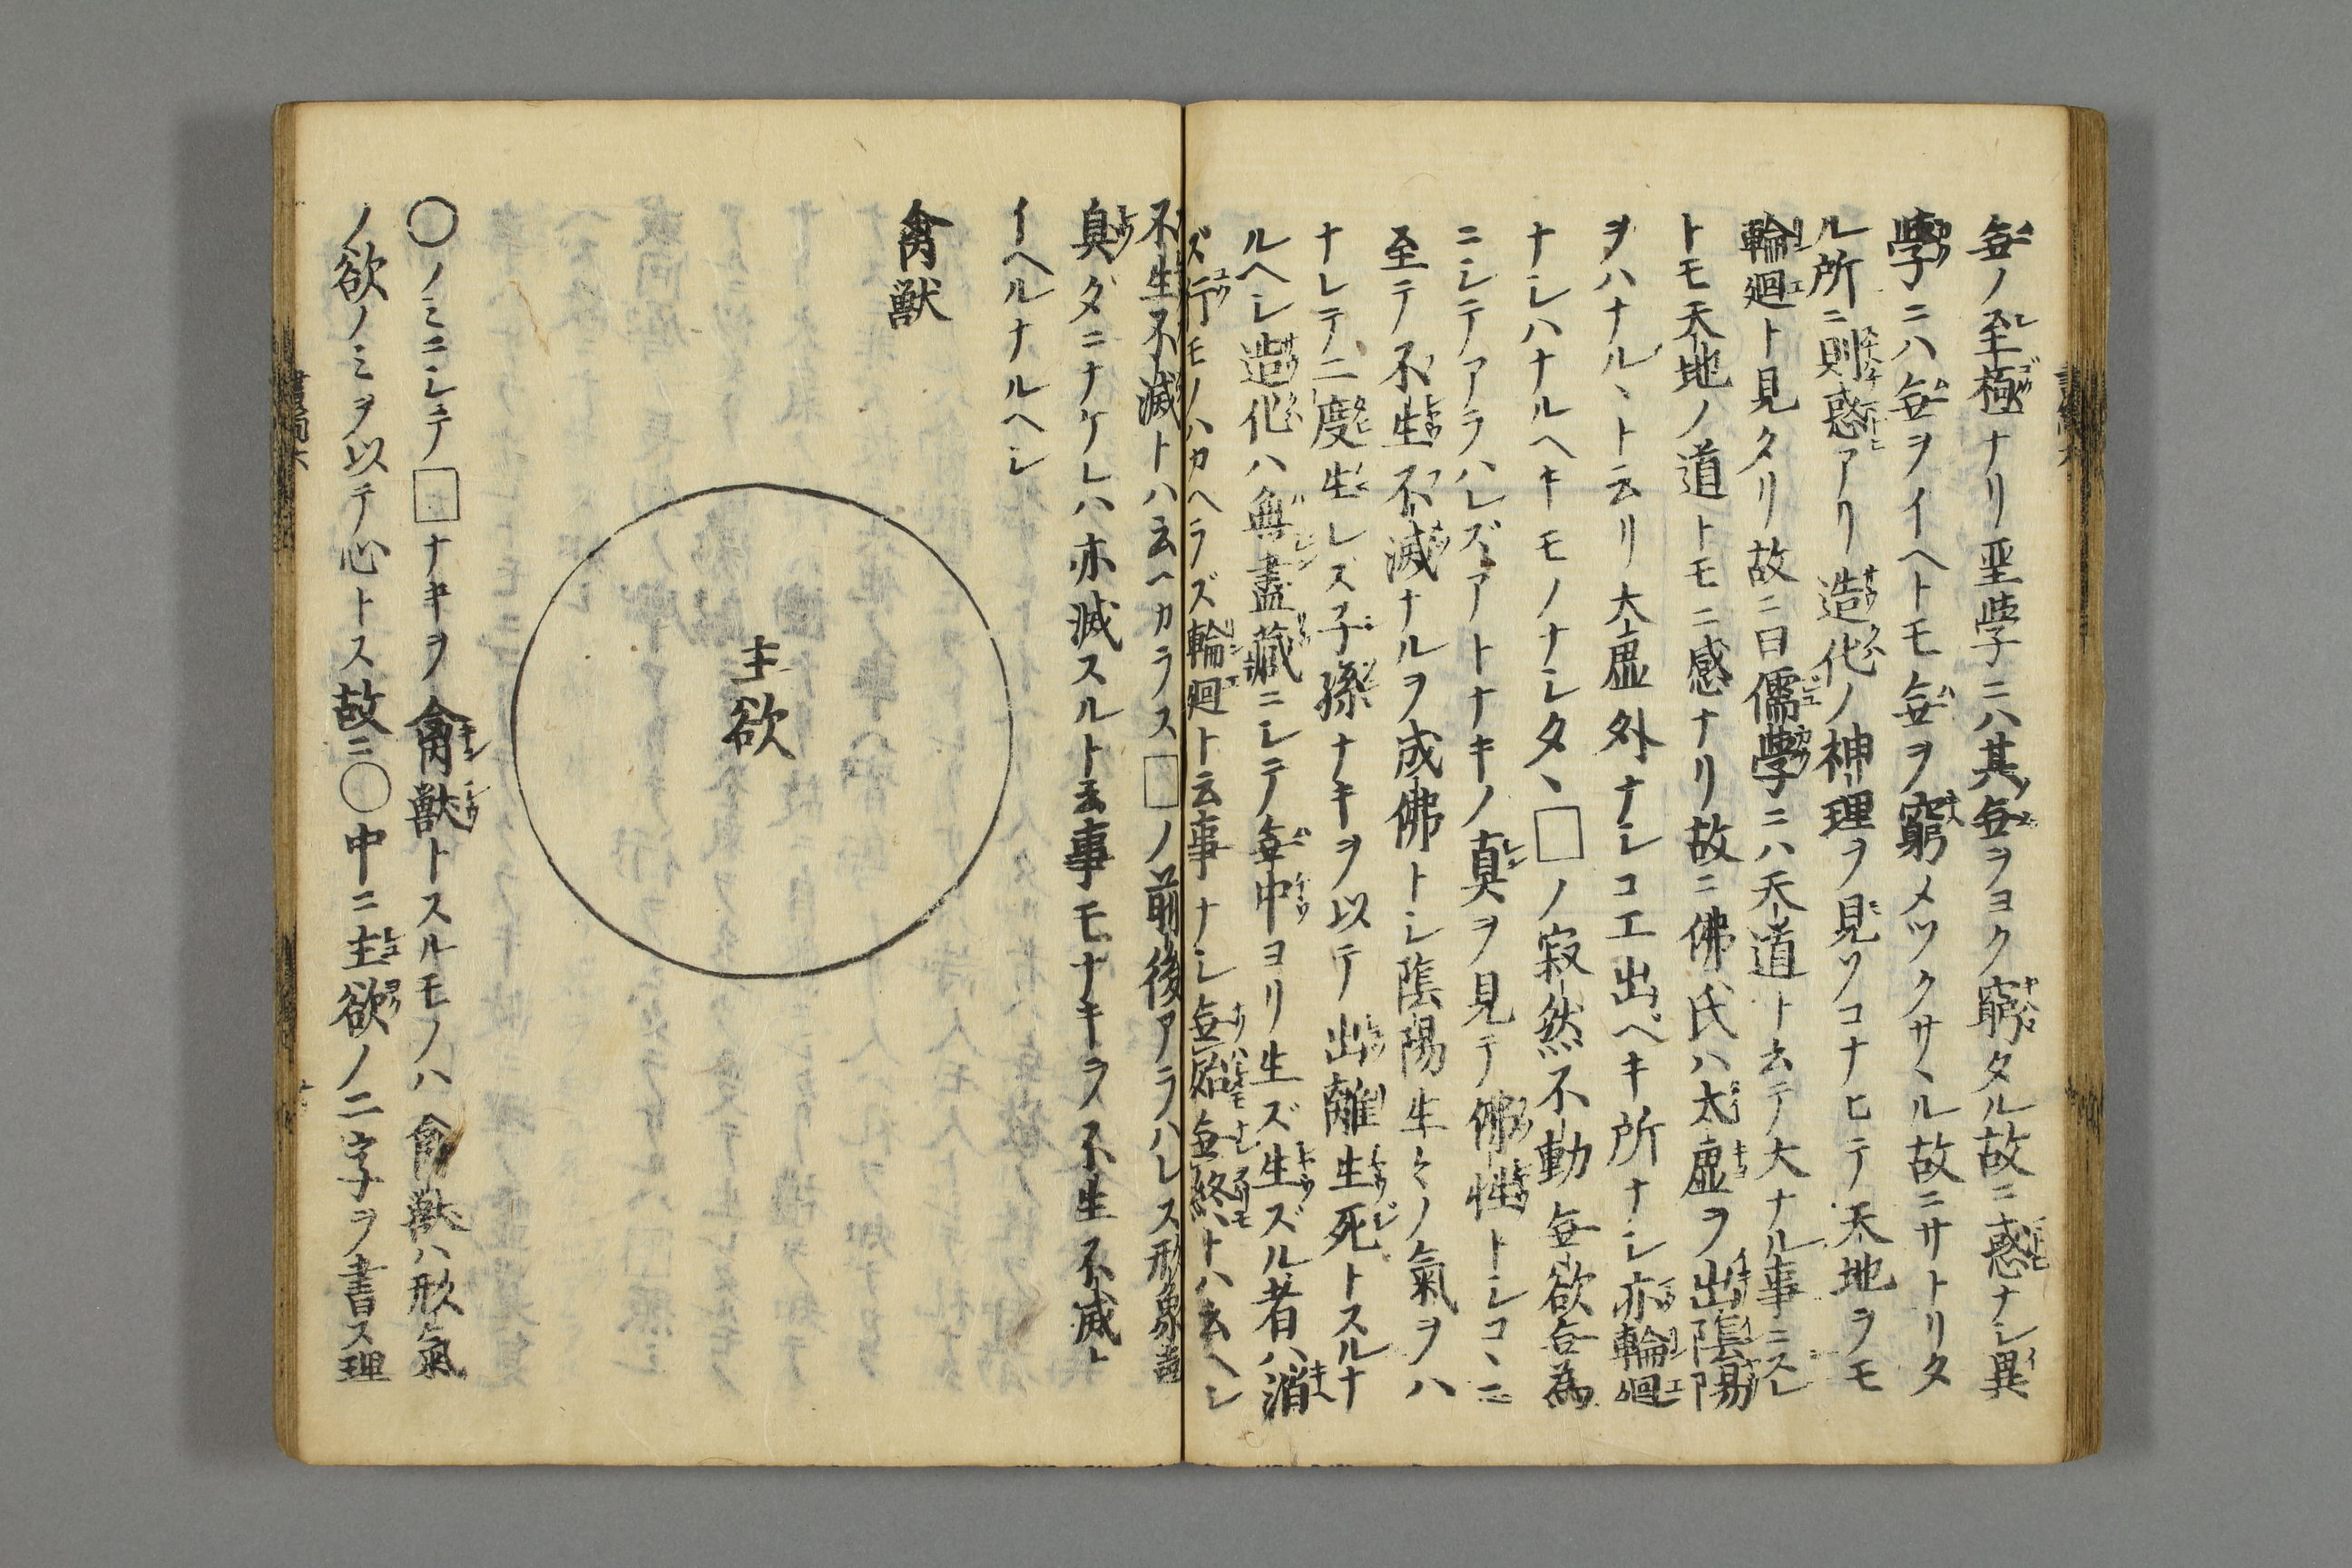 無ノ至極ナリ聖学ニハ其無ヲヨク窮タル故ニ惑ナシ異
学ニハ無ヲイヘトモ無ヲ窮メツクサヽル故ニサトリタ
ル所ニ則惑アリ造化ノ神理ヲ見ソコナヒテ天地ヲモ
輪廻ト見タリ故ニ曰儒学ニハ天道ト云テ大ナル事ニスレ
トモ天地ノ道トモニ惑ナリ故ニ佛氏ハ太虚ヲ出陰陽
ヲハナルヽト云リ太虚外ナシコエ出ベキ所ナシ亦輪廻
ナシハナルヘキモノナシタヽ□ノ寂然不動無欲無為
ニシテアラハレズアトナキノ真ヲ見テ佛性トシコヽニ
至テ不生不滅ナルヲ成佛トシ陰陽生々ノ氣ヲハ
ナレテ二度生レズ子孫ナキヲ以テ出離生死トスルナ
ルヘシ造化ハ無盡藏ニシテ無中ヨリ生ズ生ズル者ハ消
ズ行モノハカヘラズ輪廻ト云事ナシ無始無終トハ云ヘシ
不生不滅トハ云ヘカラス□ノ前後アラハレス形象聲
臭ダニナケレハ亦滅スルト云事モナキラ不生不滅ト
イヘルナルヘシ
禽獣
主欲
○ノミニシテ□ナキヲ禽獣トスルモノハ禽獣ハ形氣
ノ欲ノミヲ以テ心トス故ニ○中ニ主欲ノ二字ヲ書ス理